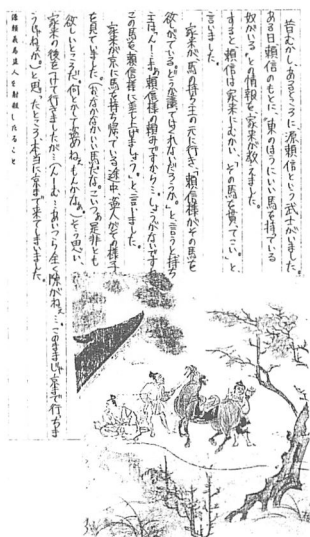 昔むかし、あるところに源頼信という武士がいました。
ある日頼信のもとに「東のほうにいい馬を持ている
奴がいる」との情報を家来が教えました。
すると頼信は家来にむかい「その馬を貰てこい」と
言いました。
家来が馬の持ち主の元に行き、「頼信様がその馬を
欲しがている。どうか譲てはくれないだろうか。」と言うと持ち
主は、「頼信様の頼みですから…しょうがないですね
この馬を頼信様に差し上げましょう。」と言いました。
家来が京に馬を持ち帰ている途中、盗人がその様子
を見ていました。「おなかなかいい馬だな。こいつぁ是非とも
欲しいところだ。何とかして盗めねぇもんかなぁ」そう思い、
家来の後をつけて行きましたが…(んーむ…あいつら全く隙がねぇ…このままじゃ京まで行ちま
うじゃねぇか)と思たところ本当に京まで来てしまいました。
源頼信馬盗人を射殺したること